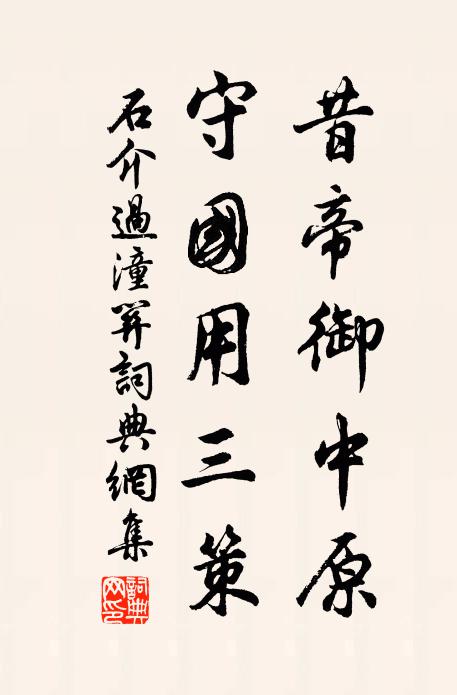 昔帝御中原
守國用三策
石介過潼關詞典網集
詞典網印